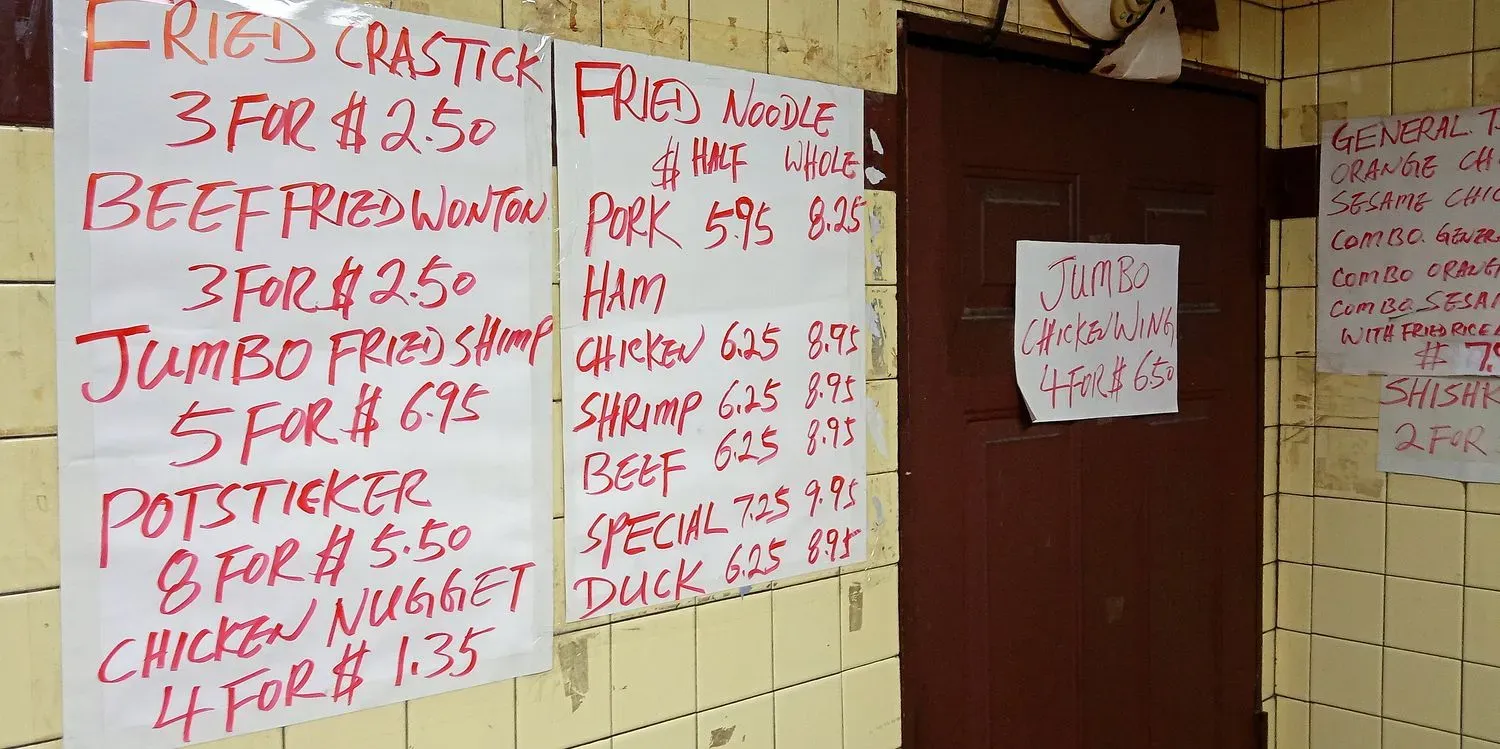 FRIED CRASTICK
3 FOR $ 2.50
BEEF FRIED WONTON
3 FOR $ 2.50
JUMBO FRIED SHIMP
5 FOR $ 6.95
POTSTICKER
8 FOR $ 5.50
CHICKEN NUGGET
4 FOR $ 1.35
FRIED NOODLE
$ HALF WHOLE
PORK 5.95 8.25
HAM
CHICKEN 6.25 8.95
SHRIMP 6.25 8.95
BEEF 6.25 8.95
SPECIAL 7.25 9.95
DUCK 6.25 8.95
JUMBO
CHICKEN WING
4 FOR $ 6.50
GENERAL
ORANGE
SESAME
COMBO.
COMBO
COMBO.
WITH FRIED RICE
$
2 FOR